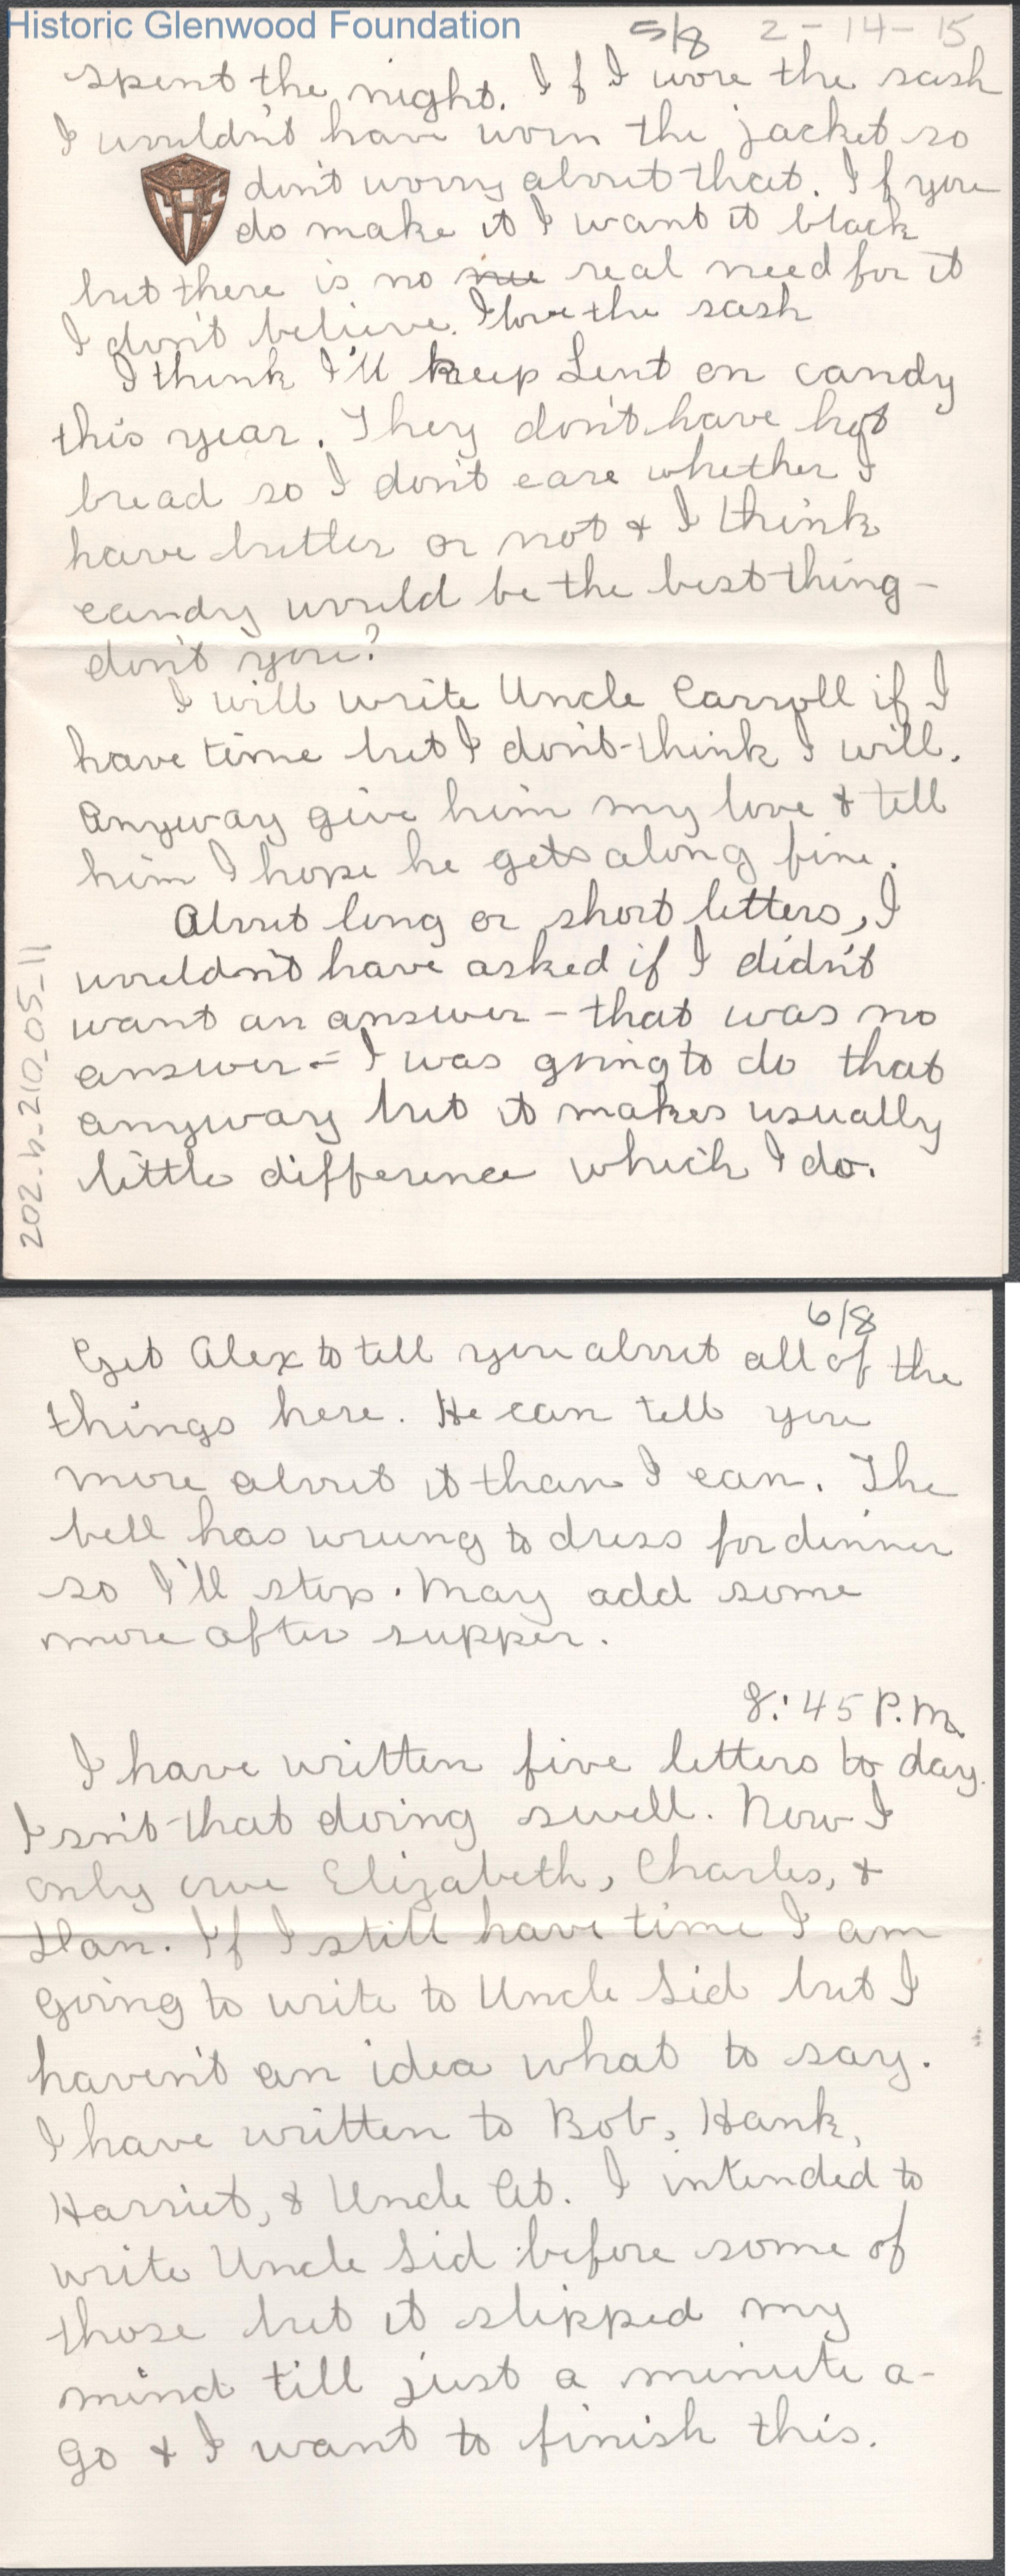 Historic Glenwood Foundation
5/8 2-14-15
spent the night. If I wore the sash
I wouldn't have worn the jacket so
don't worry about that. If you
do make it I want it black
but there is no real need for it
I don't believe. I love the sash
I think I'll keep Lent on candy
this year. They don't have hot
bread so I don't care whether I
have butter or not & I think
candy would be the best thing –
don't you?
I will write Uncle Carroll if I
have time but I don't think I will.
Anyway give him my love & tell
him I hope he gets along fine.
About long or short letters, I
wouldn't have asked if I didn't
want an answer – that was no
answer – I was going to do that
anyway but it makes usually
little difference which I do.
202.h-210_05_11
6/8
Get Alex to tell you about all of the
things here. He can tell you
more about it than I can. The
bell has wrung to dress for dinner
so I'll stop. May add some
more after supper.
8:45 P.M.
I have written five letters to day.
Isn't that doing swell. Now I
only owe Elizabeth, Charles, &
Dan. If I still have time I am
going to write to Uncle Sid but I
haven't an idea what to say.
I have written to Bob, Hank,
Harriet, & Uncle At. I intended to
write Uncle Sid before some of
those but it slipped my
mind till just a minute a-
go & I want to finish this.